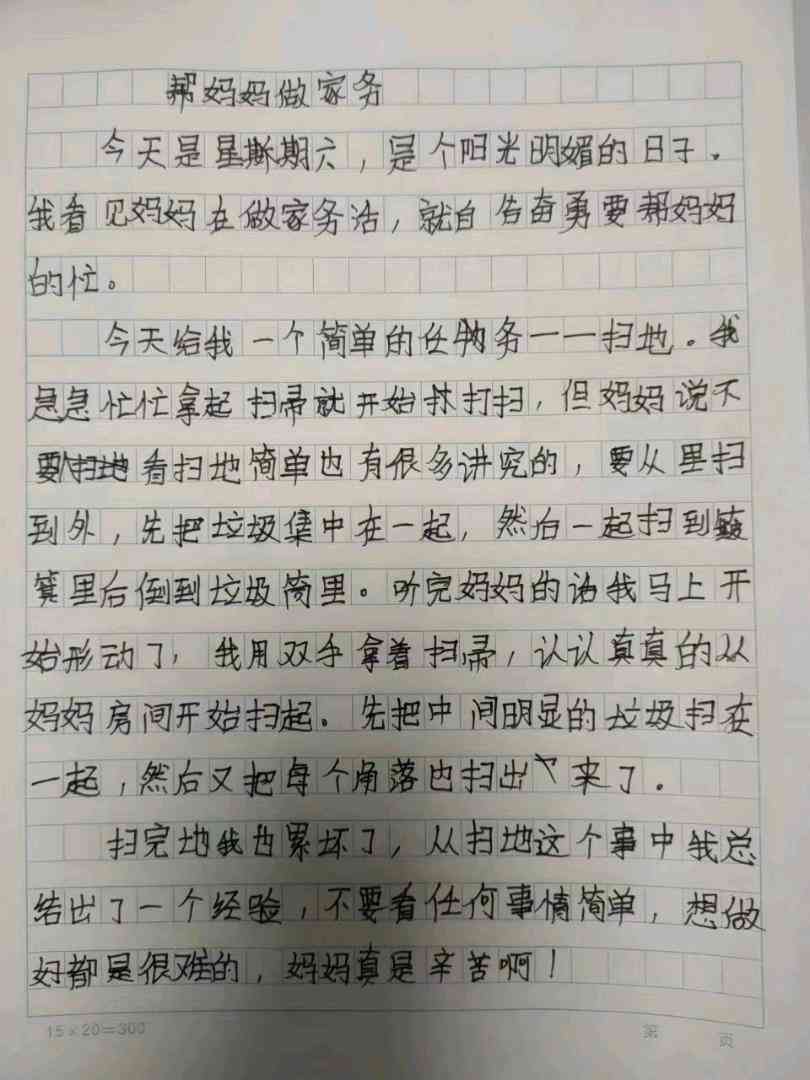 帮妈妈做家务
今天是星期六，是个阳光明媚的日子。
我看见妈妈在做家务活，就自告奋勇要帮妈妈
的忙。
今天给我一个简单的任务——扫地。我
急急忙忙拿起扫帚就开始打扫，但妈妈说不
要看扫地简单也有很多讲究的，要从里扫
到外，先把垃圾集中在一起，然后一起扫到簸
箕里后倒到垃圾筒里。听完妈妈的话我马上开
始形动了，我用双手拿着扫帚，认认真真的从
妈妈房间开始扫起。先把中间明显的垃圾扫在
一起，然后又把每个角落也扫出来了。
扫完地我也累坏了，从扫地这个事中我总
结出了一个经验，不要看任何事情简单，想做
好都是很难的，妈妈真是辛苦啊！
15×20=300
第 页